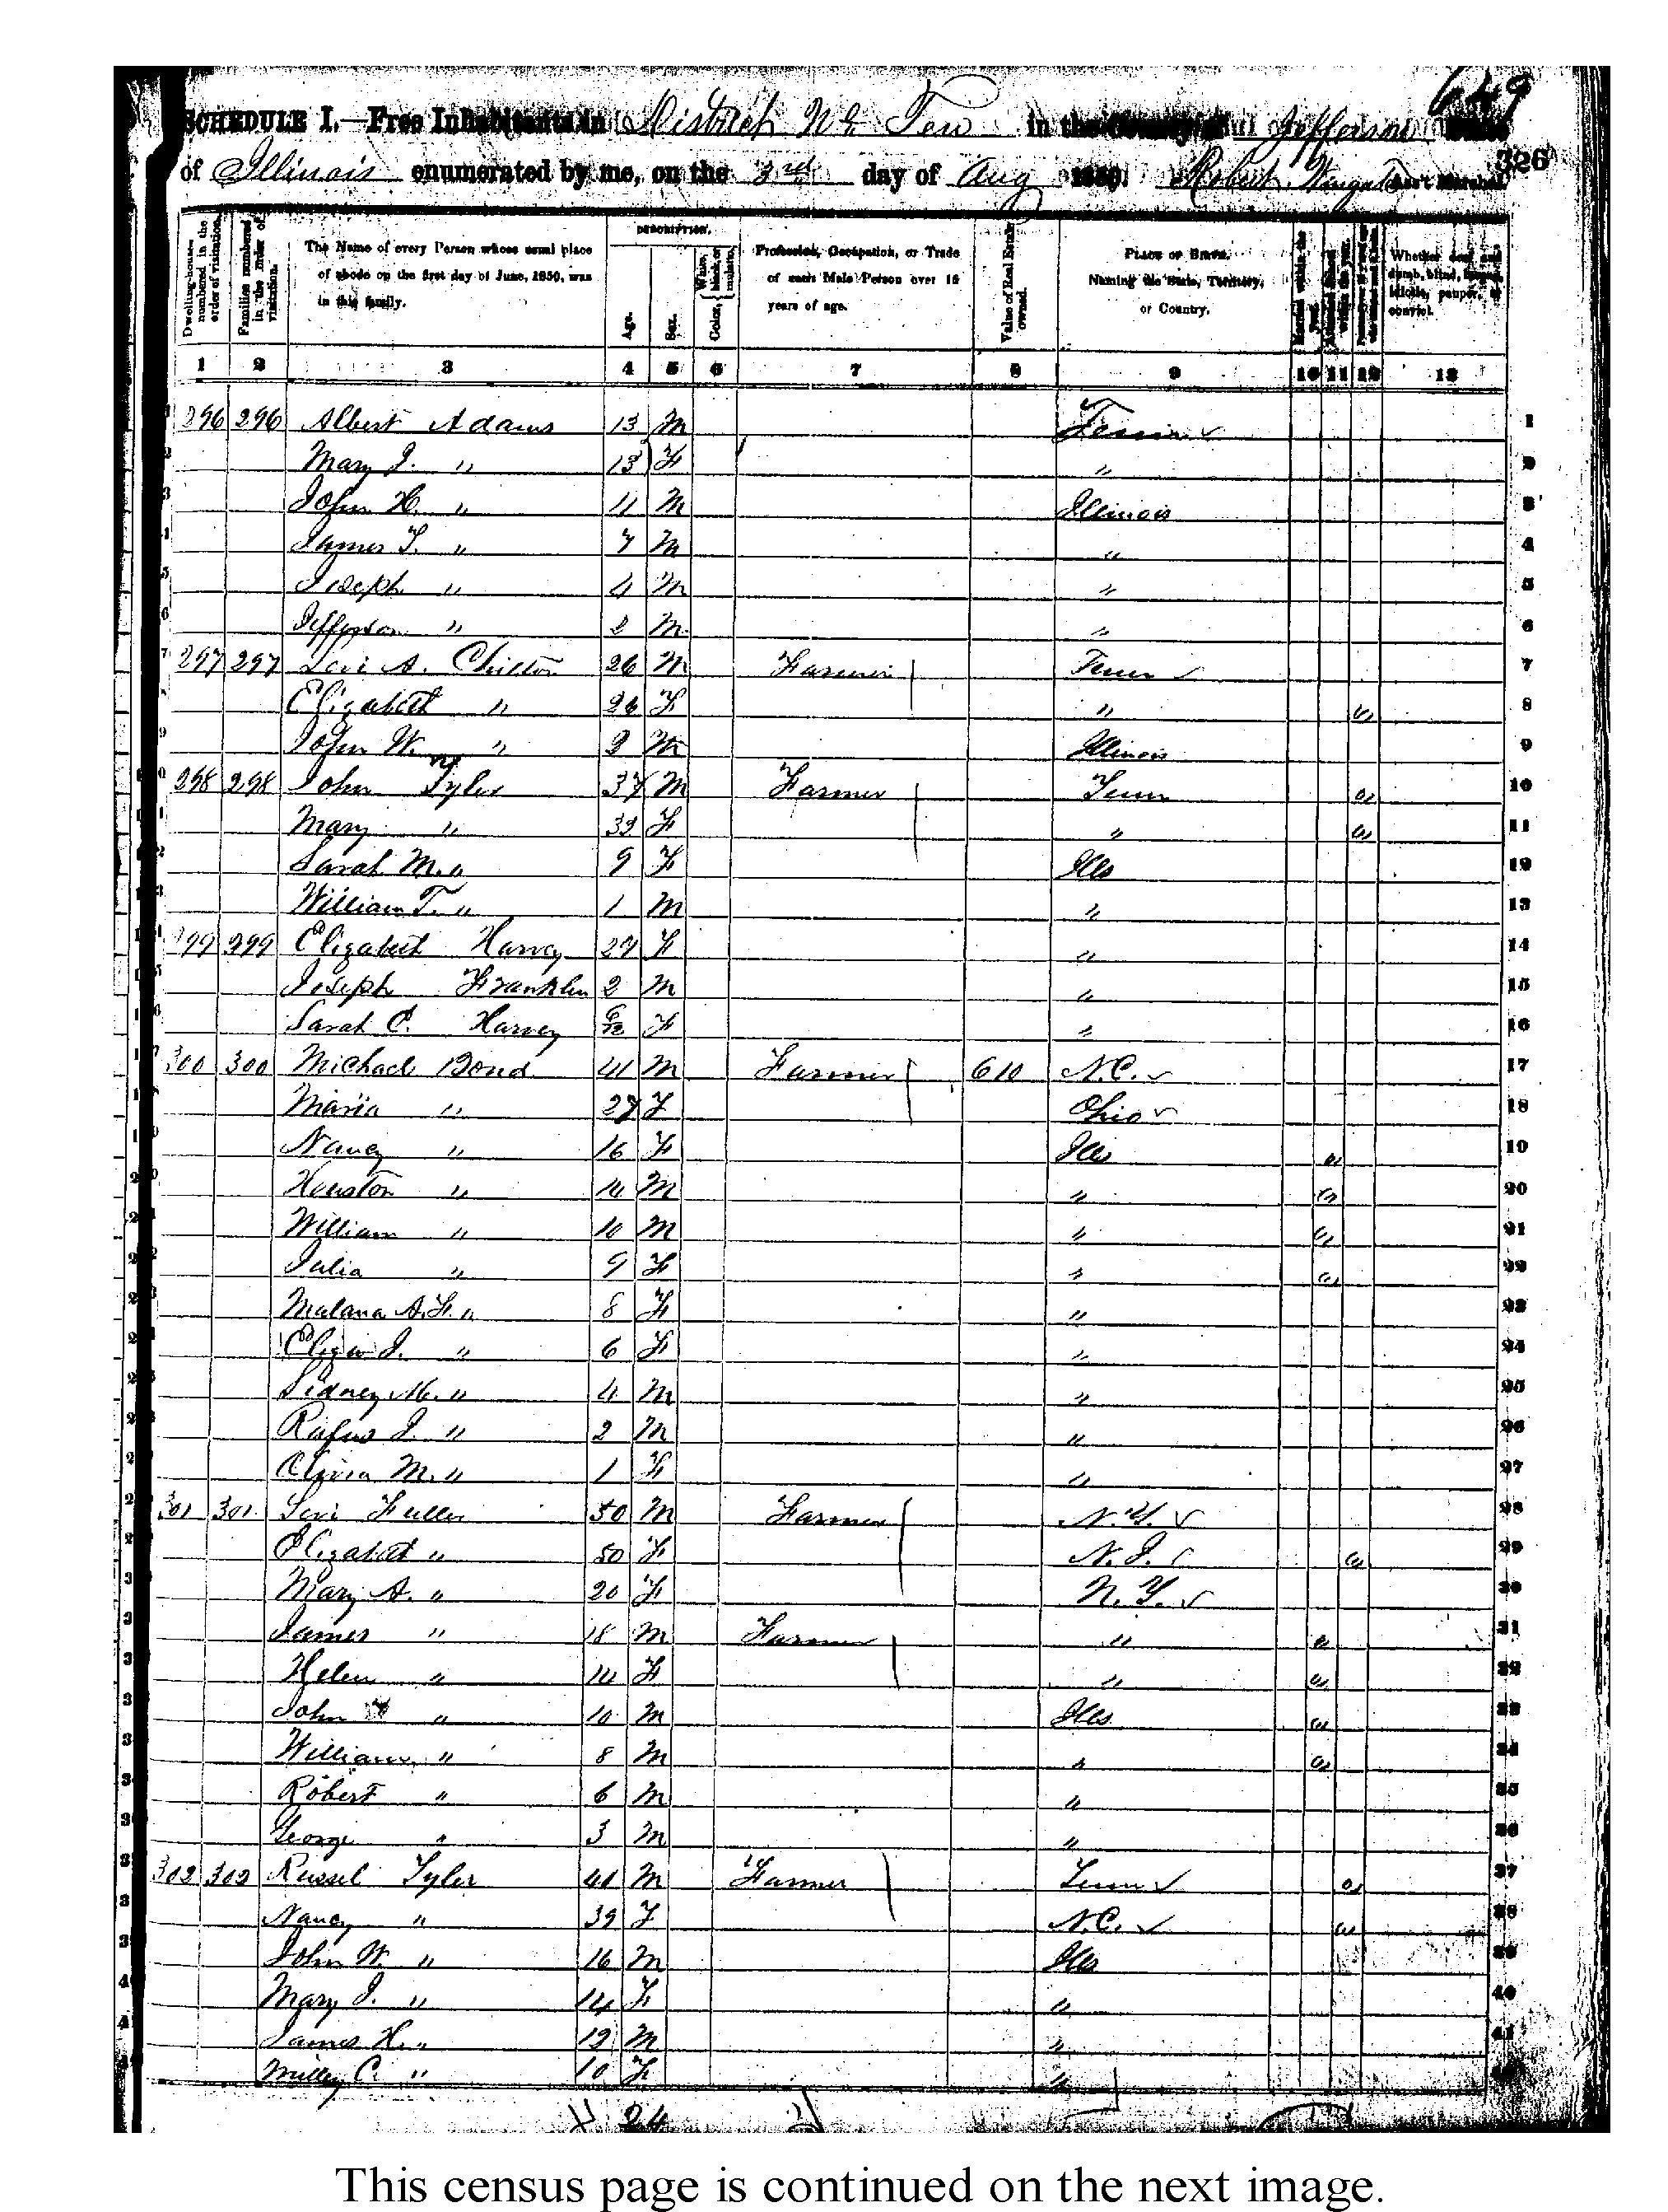 649
SCHEDULE I.—Free Inhabitants in District No Ten in the County of Jefferson State
326
of Illinois enumerated by me, on the 3rd day of Aug 1850. Robert Wingate Ass't Marshal
Dwelling-houses numbered in the order of visitation.
Families numbered in the order of visitation.
The Name of every Person whose usual place of abode on the first day of June, 1850, was in this family.
DESCRIPTION.
Age.
Sex.
Color, White, black, or mulatto.
Profession, Occupation, or Trade of each Male Person over 15 years of age.
Value of Real Estate owned.
PLACE OF BIRTH. Naming the State, Territory, or Country.
Married within the year.
Whether deaf and dumb, blind, insane, idiotic, pauper, or convict.
1 2 3 4 5 6 7 8 9 10 11 12 13
1 296 296 Albert Adams 13 M Tenn 1
2 Mary J. " 13 F " 2
3 John H. " 11 M Illinois 3
4 James T. " 7 M " 4
5 Joseph " 4 M " 5
6 Jefferson " 2 M " 6
7 297 297 Levi A. Chilton 26 M Farmer Tenn 7
8 Elizabeth " 26 F " 8
9 John W. " M Illinois 9
10 298 298 John Tyler 37 M Farmer Tenn 10
11 Mary " 39 F " 11
12 Sarah M. " 9 F Ills 12
13 William T. " 1 M " 13
14 299 299 Elizabeth Harvey 27 F " 14
15 Joseph Franklin 2 M " 15
16 Sarah C. Harvey 6/12 F " 16
17 300 300 Michael Bond 41 M Farmer 610 N.C. 17
18 Maria " 27 F Ohio 18
19 Nancy " 16 F Ills 19
20 Houston " 14 M " 20
21 William " 10 M " 21
22 Julia " 9 F " 22
23 Malana A.F. " 8 F " 23
24 Eliza J. " 6 F " 24
25 Sidney M. " 4 M " 25
26 Rufus J. " 2 M " 26
27 Olivia M. " 1 F " 27
28 301 301 Levi Fuller 50 M Farmer N.Y. 28
29 Elizabeth " 50 F N.J. 29
30 Mary A. " 20 F N.Y. 30
31 James " 18 M Farmer " 31
32 Helen " 14 F " 32
33 John " 10 M Ills 33
34 William " 8 M " 34
35 Robert " 6 M " 35
36 George " 3 M " 36
37 302 302 Russel Tyler 41 M Farmer Tenn 37
38 Nancy " 39 F N.C. 38
39 John W. " 16 M Ills 39
40 Mary J. " 14 F " 40
41 James H. " 12 M " 41
42 Milley C. " 10 F " 42
24
This census page is continued on the next image.